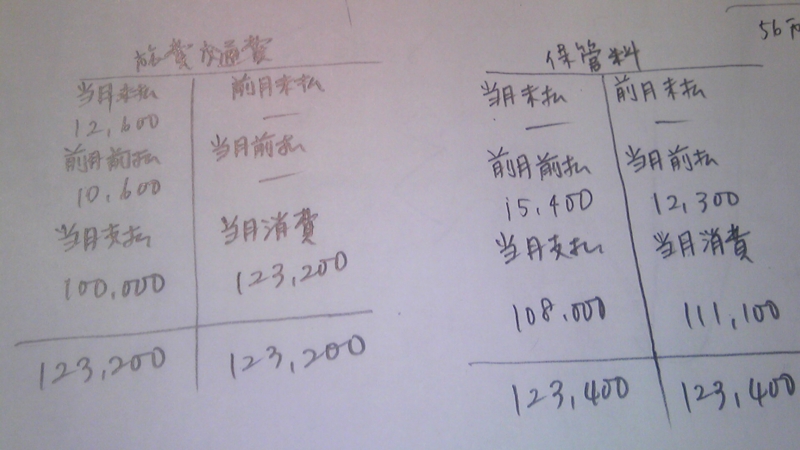 旅費交通費
当月未払
前月未払
12,600
—
前月前払
当月前払
10,600
—
当月支払
当月消費
100,000
123,200
123,200
123,200
保管料
当月未払
前月未払
—
—
前月前払
当月前払
15,400
12,300
当月支払
当月消費
108,000
111,100
123,400
123,400
56